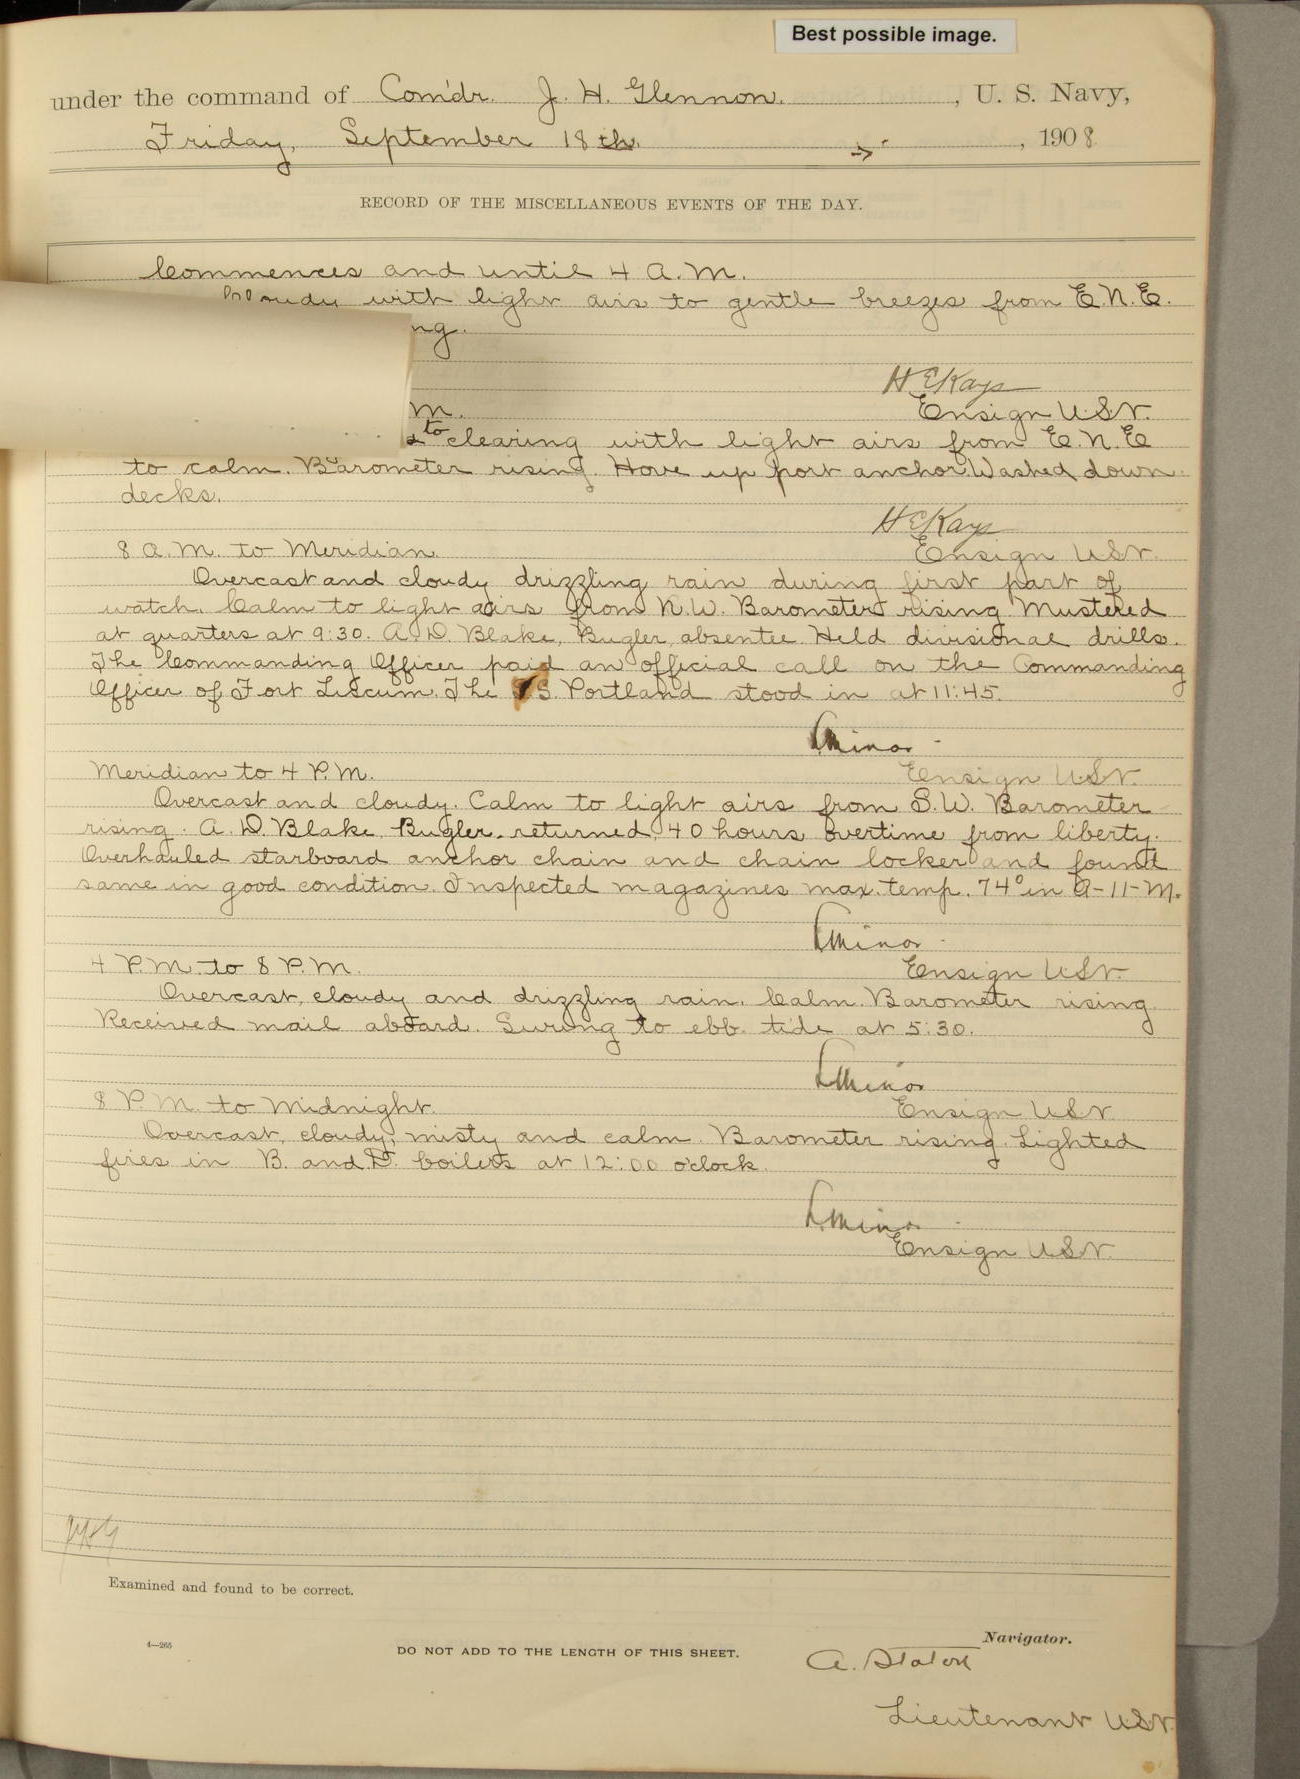 Best possible image.
under the command of Com'dr. J. H. Glennon. , U. S. Navy,
Friday, September 18th. , 1908
RECORD OF THE MISCELLANEOUS EVENTS OF THE DAY.
Commences and until 4 A.M.
Cloudy with light airs to gentle breezes from E.N.E.
ng.
H E Kays
M. Ensign U.S.N.
to clearing with light airs from E.N.E
to calm. Barometer rising. Hove up port anchor. Washed down
decks.
H E Kays
8 A.M. to Meridian. Ensign U.S.N.
Overcast and cloudy drizzling rain during first part of
watch. Calm to light airs from N.W. Barometer rising Mustered
at quarters at 9:30. A.D. Blake, Bugler, absentee. Held divisional drills.
The Commanding Officer paid an official call on the Commanding
Officer of Fort Liscum. The S.S. Portland stood in at 11:45.
L Minor
Meridian to 4 P.M. Ensign U.S.N.
Overcast and cloudy. Calm to light airs from S.W. Barometer
rising. A. D. Blake, Bugler, returned, 40 hours overtime from liberty.
Overhauled starboard anchor chain and chain locker and found
same in good condition. Inspected magazines max. temp. 74° in A-11-M.
L Minor
4 P.M. to 8 P.M. Ensign U.S.N.
Overcast, cloudy and drizzling rain. Calm. Barometer rising.
Received mail aboard. Swung to ebb tide at 5:30.
L Minor
8 P.M. to Midnight. Ensign U.S.N
Overcast, cloudy, misty and calm. Barometer rising. Lighted
fires in B. and D. boilers at 12:00 o'clock.
L Minor
Ensign U.S.N.
JHG
Examined and found to be correct.
4—265
DO NOT ADD TO THE LENGTH OF THIS SHEET.
Navigator.
A. Staton
Lieutenant U.S.N.